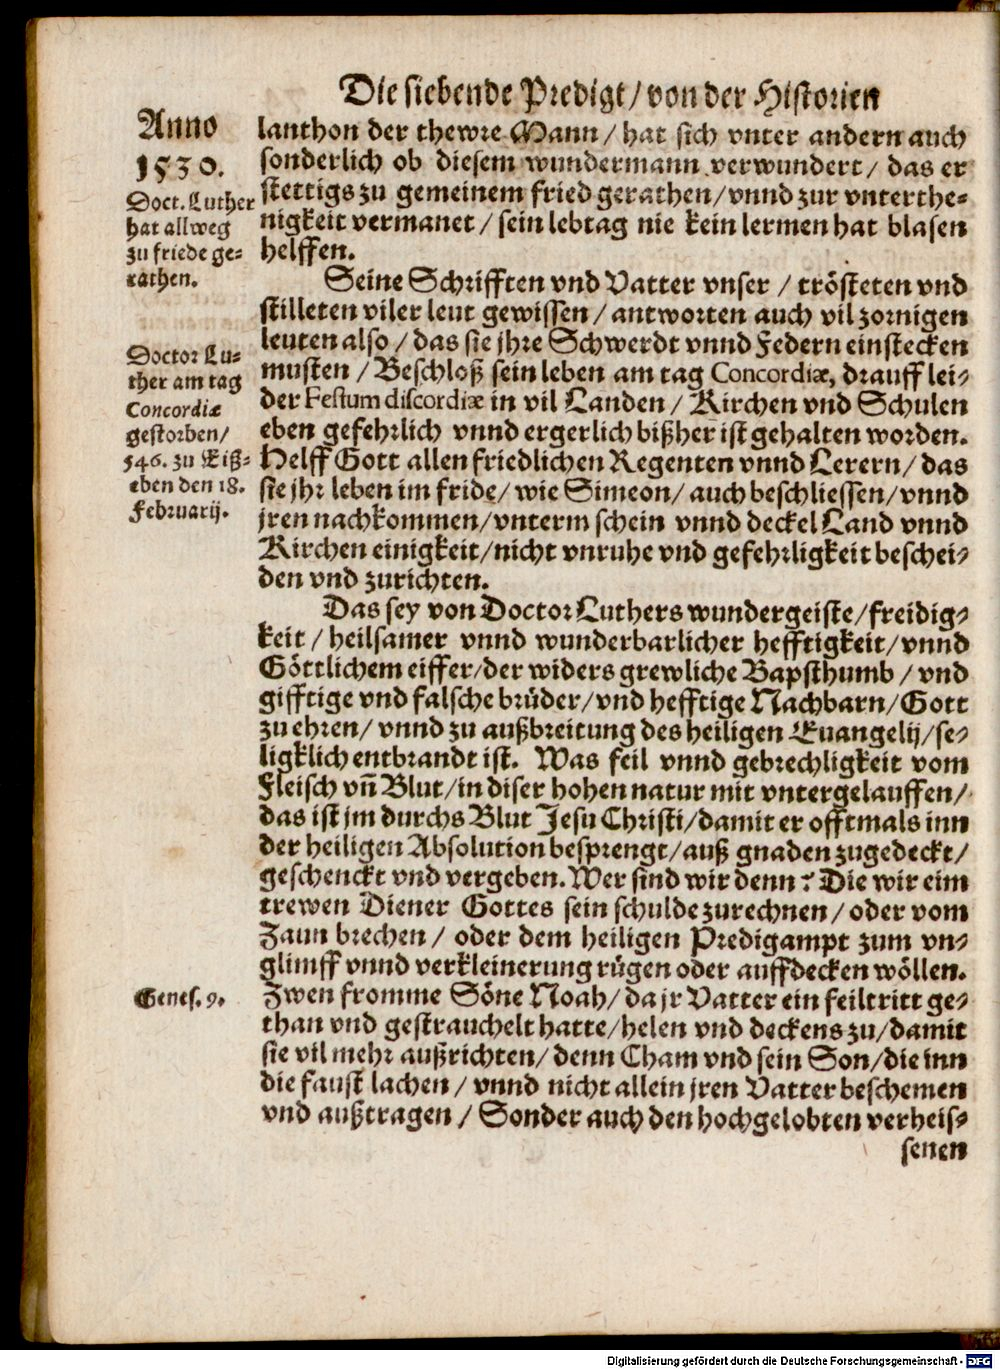 Die siebende Predigt / von der Historien
Anno
1530.
Doct. Luther
hat allweg
zu friede ge-
rathen.
lanthon der thewre Mann / hat sich vnter andern auch
sonderlich ob diesem wundermann verwundert / das er
stettigs zu gemeinem fried gerathen / vnnd zur vnterthe-
nigkeit vermanet / sein lebtag nie kein lermen hat blasen
helffen.
Seine Schrifften vnd Vatter vnser / trösteten vnd
stilleten viler leut gewissen / antworten auch vil zornigen
leuten also / das sie jhre Schwerdt vnnd Federn einstecken
musten / Beschloß sein leben am tag Concordiæ, drauff lei-
der Festum discordiæ in vil Landen / Kirchen vnd Schulen
eben gefehrlich vnnd ergerlich bißher ist gehalten worden.
Helff Gott allen friedlichen Regenten vnnd Lerern / das
sie jhr leben im fride / wie Simeon / auch beschliessen / vnnd
jren nachkommen / vnterm schein vnnd deckel Land vnnd
Kirchen einigkeit / nicht vnruhe vnd gefehrligkeit beschei-
den vnd zurichten.
Doctor Lu-
ther am tag
Concordiæ
gestorben /
546. zu Eiß-
eben den 18.
Februarij.
Das sey von Doctor Luthers wundergeiste / freidig-
keit / heilsamer vnnd wunderbarlicher hefftigkeit / vnnd
Göttlichem eiffer / der widers grewliche Bapsthumb / vnd
gifftige vnd falsche brüder / vnd hefftige Nachbarn / Gott
zu ehren / vnnd zu außbreitung des heiligen Euangelij / se-
ligklich entbrandt ist. Was feil vnnd gebrechligkeit vom
Fleisch vñ Blut / in diser hohen natur mit vntergelauffen /
das ist jm durchs Blut Jesu Christi / damit er offtmals inn
der heiligen Absolution besprengt / auß gnaden zugedeckt /
geschenckt vnd vergeben. Wer sind wir denn? Die wir eim
trewen Diener Gottes sein schulde zurechnen / oder vom
Zaun brechen / oder dem heiligen Predigampt zum vn-
glimff vnnd verkleinerung rügen oder auffdecken wöllen.
Genes. 9.
Zwen fromme Söne Noah / da jr Vatter ein feiltritt ge-
than vnd gestrauchelt hatte / helen vnd deckens zu / damit
sie vil mehr außrichten / denn Cham vnd sein Son / die inn
die faust lachen / vnnd nicht allein jren Vatter beschemen
vnd außtragen / Sonder auch den hochgelobten verheis-
senen
Digitalisierung gefördert durch die Deutsche Forschungsgemeinschaft - DFG